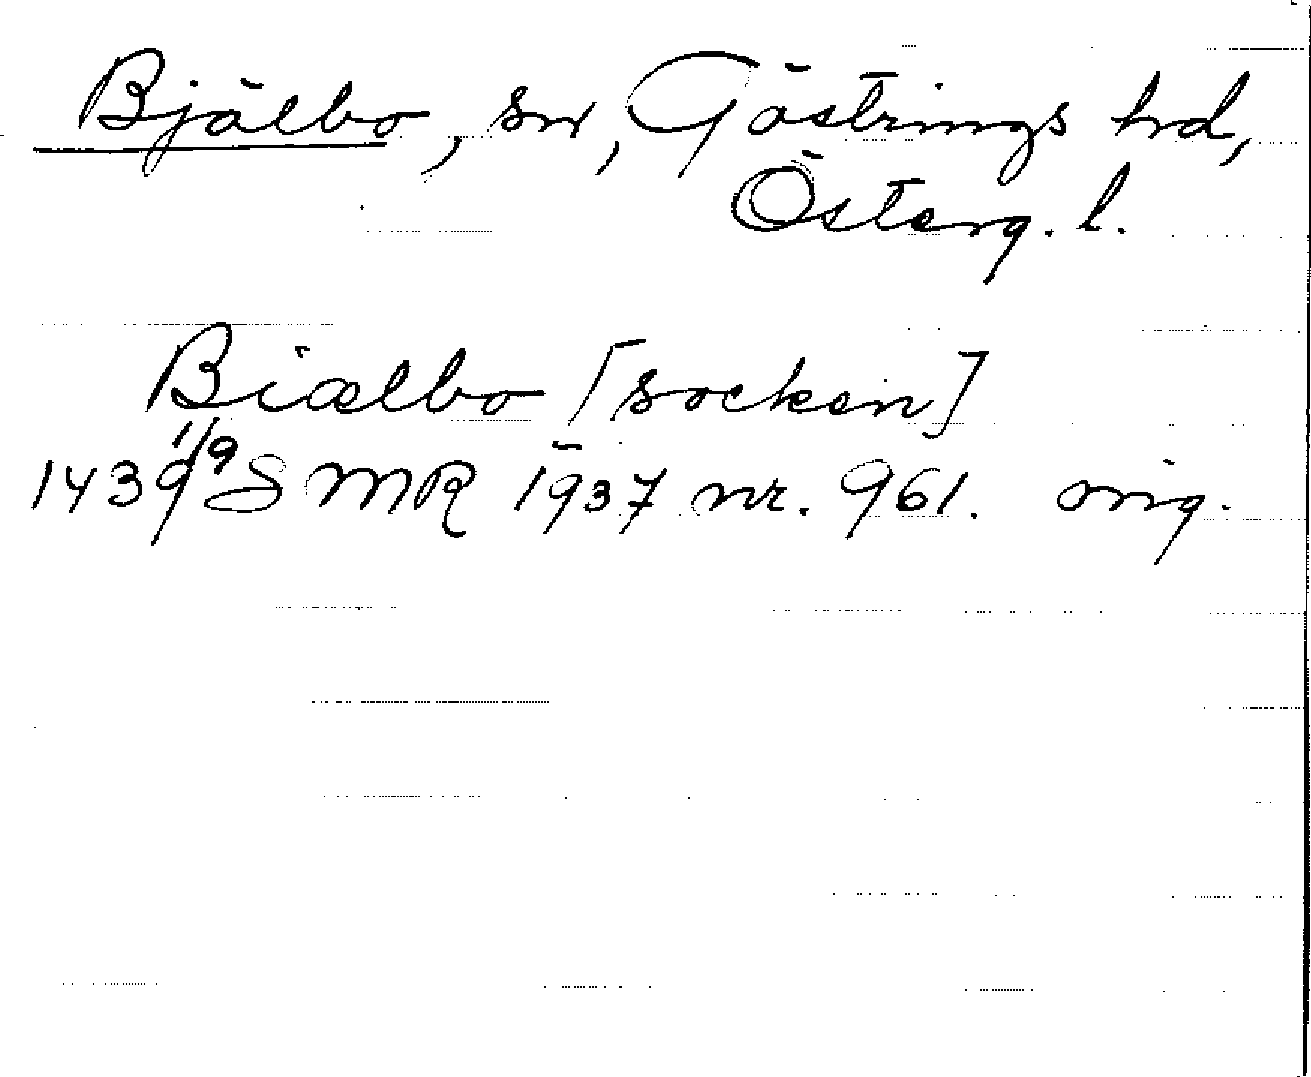 Bjälbo, sn, Göstrings hd,
Österg. l.
Biælbo [socken]
1439 1/9 SMR 1937 nr. 961. orig.